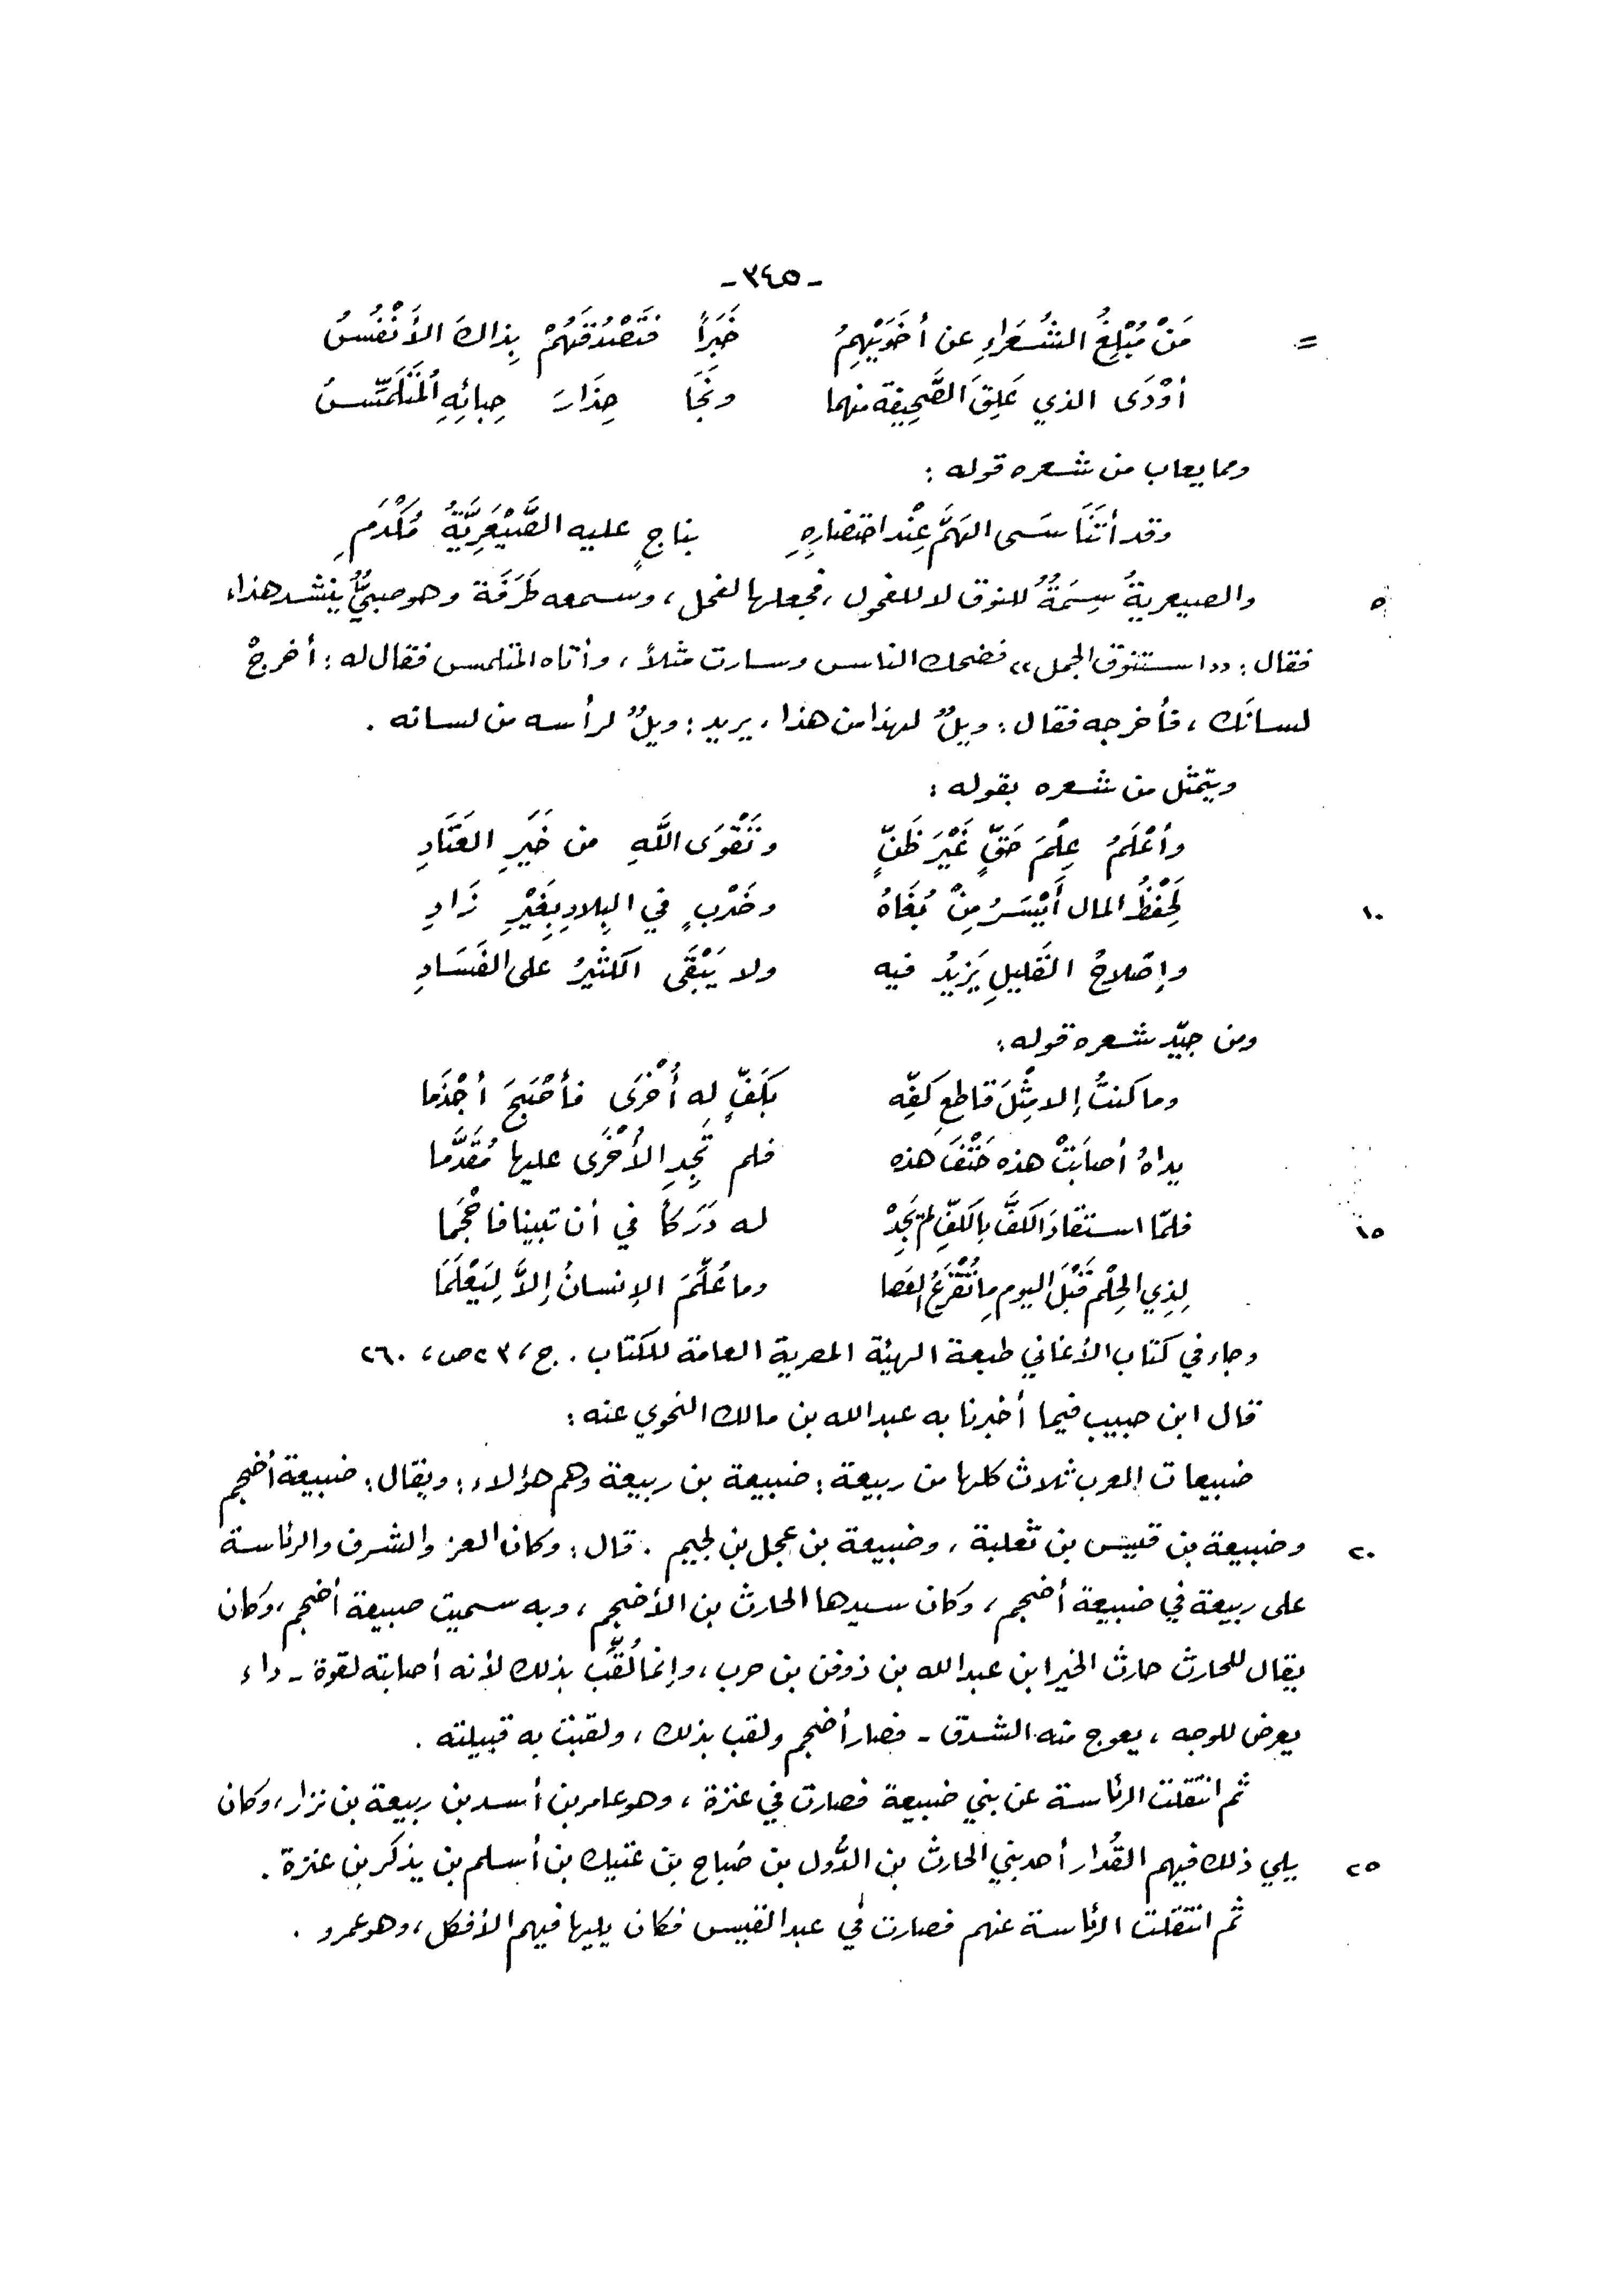 -٣٤٥-
= مَنْ مُبْلِغُ الشُعَراءِ عن أخَوَيْهِمُ خَبَراً فتَصْدُقَهُمْ بِذاكَ الأَنْفُسُ
أوْدَى الذي عَلِقَ الصَّحِيفة منهما ونَجَا حِذَارَ حِبائِهِ المُتَلَمِّسُ
ومما يعاب من شعره قوله :
وقد أتَنَاسَى الهَمَّ عِنْد احتضارِهِ بناجٍ عليه الصَّيْعَرِيَّةُ مُكْدَمِ
٥ والصيعريةُ سِمَةٌ للنوق لا للفحول ، فجعلها لفحل ، وسمعه طَرَفَة وهو صبيٌّ ينشد هذا ،
فقال : «استنوق الجمل» فضحك الناس وسارت مثلاً ، وأتاه المتلمس فقال له : أخرجْ
لسانَك ، فأخرجه فقال : ويلٌ لهذا من هذا ، يريد : ويلٌ لرأسه من لسانه .
ويتمثل من شعره بقوله :
وأعْلَمُ عِلْمَ حَقٍّ غَيْرَ ظَنٍّ وتَقْوَى اللَّهِ من خَيرِ العَتَادِ
١٠ لَحِفْظُ المال أَيْسَرُ مِنْ بُغَاهُ وضَرْبٍ في البِلادِ بِغَيْرِ زَادِ
وإصْلاحُ القَليلِ يَزِيدُ فيه ولا يَبْقَى الكثيرُ على الفَسَادِ
ومن جيّد شعره قوله :
وما كنتُ إلا مِثْلَ قاطعِ كَفِّه بكَفٍّ له أُخْرَى فأصْبَحَ أجْذَما
يداهُ أصابَتْ هذه حَتْفَ هذه فلم تَجِدِ الأُخْرَى عليها مُقَدَّما
١٥ فلمّا استقادَ الكفَّ بالكفِّ لم يَجِدْ له دَرَكاً في أن تبينا فاحْجَما
لِذِي الحِلْم قَبْلَ اليوم ما تُقْرَعُ العَصا وما عُلِّمَ الإنسانُ إلاَّ لِيَعْلَمَا
وجاء في كتاب الأغاني طبعة الهيئة المصرية العامة للكتاب . ج، ٢٣ ص، ٢٦٠
قال ابن حبيب فيما أخبرنا به عبد الله بن مالك النحوي عنه :
ضبيعات العرب ثلاث كلها من ربيعة : ضبيعة بن ربيعة وهم هؤلاء : ويقال : ضبيعة أضجم
٢٠ وضبيعة بن قيس بن ثعلبة ، وضبيعة بن عجل بن لجيم . قال : وكان العز والشرف والرئاسة
على ربيعة في ضبيعة أضجم ، وكان سيدها الحارث بن الأضجم ، وبه سميت صبيعة أضجم ، وكان
يقال للحارث حارث الخير ابن عبد الله بن زوفن بن حرب ، وإنما لُقِّب بذلك لأنه أصابته لقوة - داء
يعرض للوجه ، يعوج منه الشدق - فصار أضجم ولقب بذلك ، ولقبت به قبيلته .
ثم انتقلت الرئاسة عن بني ضبيعة فصارت في عنزة ، وهو عامر بن أسد بن ربيعة بن نزار ، وكان
٢٥ يلي ذلك فيهم القُدار أحد بني الحارث بن الدُّول بن صُباح بن عتيك بن أسلم بن يذكر بن عنزة .
ثم انتقلت الرئاسة عنهم فصارت في عبد القيس فكان يليها فيهم الأفكل ، وهو عمرو .